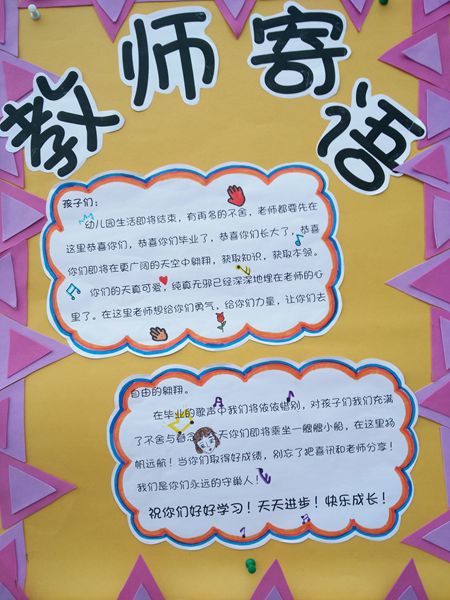 教师寄语
孩子们：
幼儿园生活即将结束，有再多的不舍，老师都要先在
这里恭喜你们，恭喜你们毕业了，恭喜你们长大了，恭喜
你们即将在更广阔的天空中翱翔，获取知识，获取本领。
你们的天真可爱，纯真无邪已经深深地埋在老师的心
里了。在这里老师想给你们勇气，给你们力量，让你们去
自由的翱翔。
在毕业的歌声中我们将依依惜别，对孩子们我们充满
了不舍与眷念 天你们即将乘坐一艘艘小船，在这里扬
帆远航！当你们取得好成绩，别忘了把喜讯和老师分享！
我们是你们永远的守巢人！
祝你们好好学习！天天进步！快乐成长！